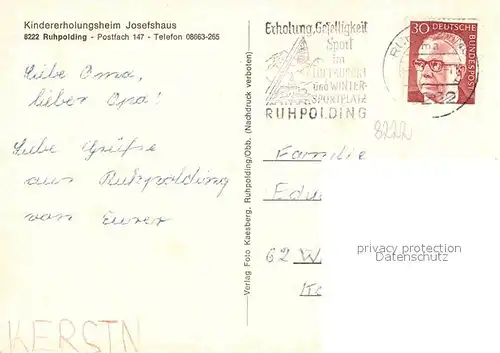 Kindererholungsheim Josefshaus
8222 Ruhpolding - Postfach 147 - Telefon 08663-265
Liebe Oma,
lieber Opa!
Liebe Grüße
aus Ruhpolding
von Eurer
KERSTN
Verlag Foto Kaesberg, Ruhpolding/Obb. (Nachdruck verboten)
Erholung, Geselligkeit
Sport
im
LUFTKURORT
UND WINTER-
SPORTPLATZ
RUHPOLDING
30
DEUTSCHE BUNDESPOST
8222
Familie
Edu
62 W
privacy protection
Datenschutz